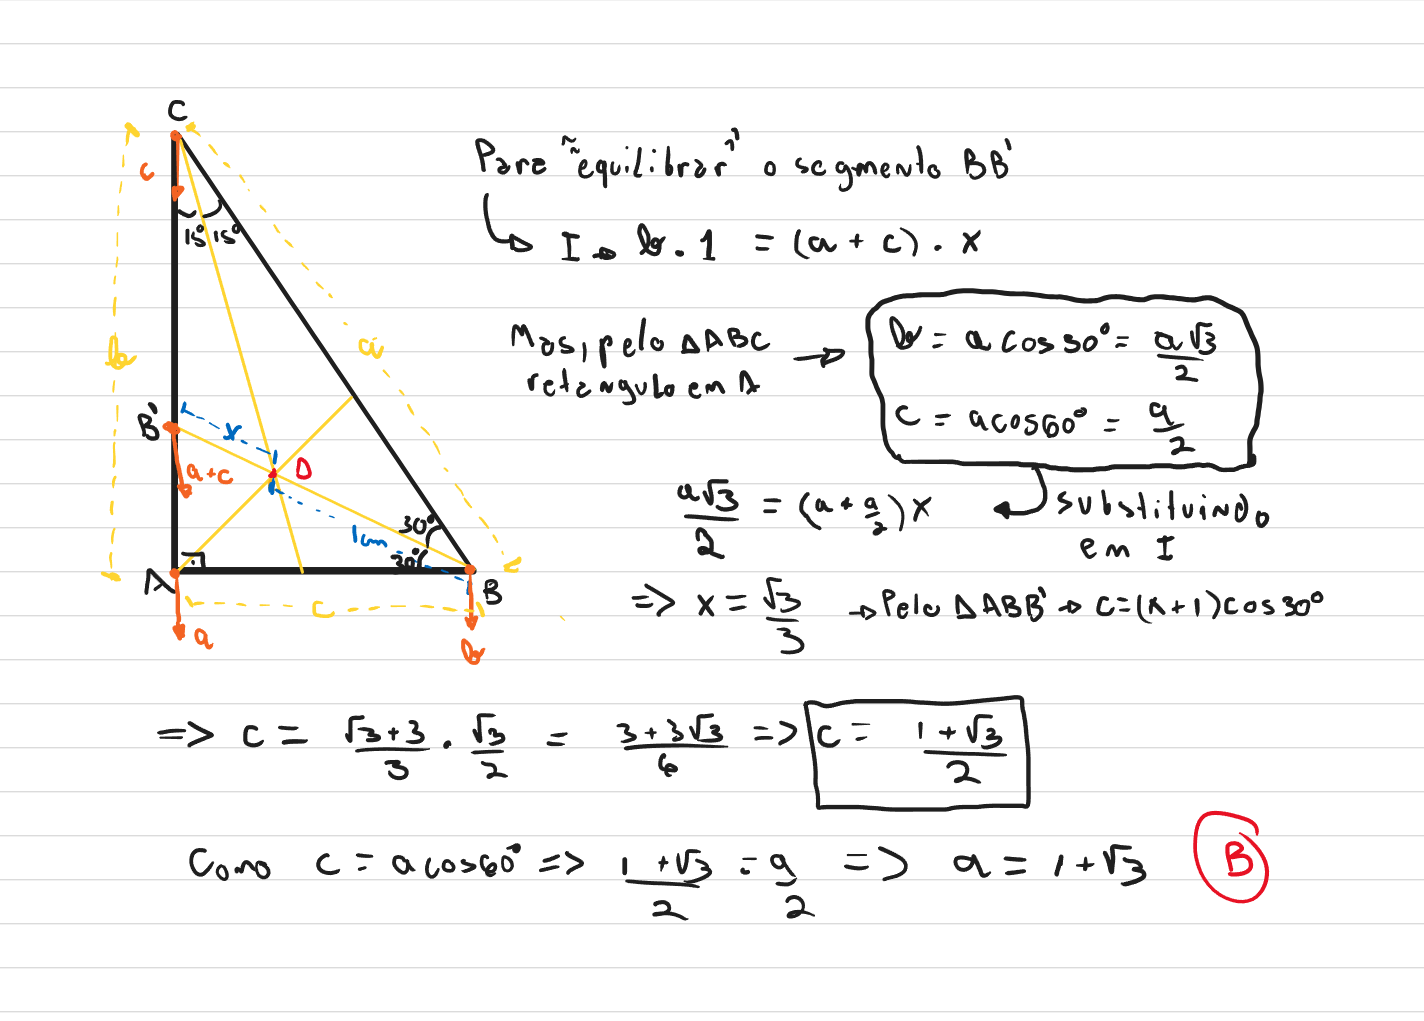 C
c
15° 15°
b
a
B'
x
D
a+c
1cm
30°
30°
A
B
c
a
b
Para "equilibrar" o segmento BB'
I → b . 1 = (a + c) . x
Mas, pelo ΔABC
retângulo em A
→
b = a cos 30° = a√3/2
c = a cos 60° = a/2
substituindo
em I
a√3/2 = (a + a/2) x
=> x = √3/3 → Pelo ΔABB' → c = (x+1) cos 30°
=> c = √3+3/3 . √3/2 = 3+3√3/6 => c = 1+√3/2
Como c = a cos 60° => 1+√3/2 = a/2 => a = 1+√3
B